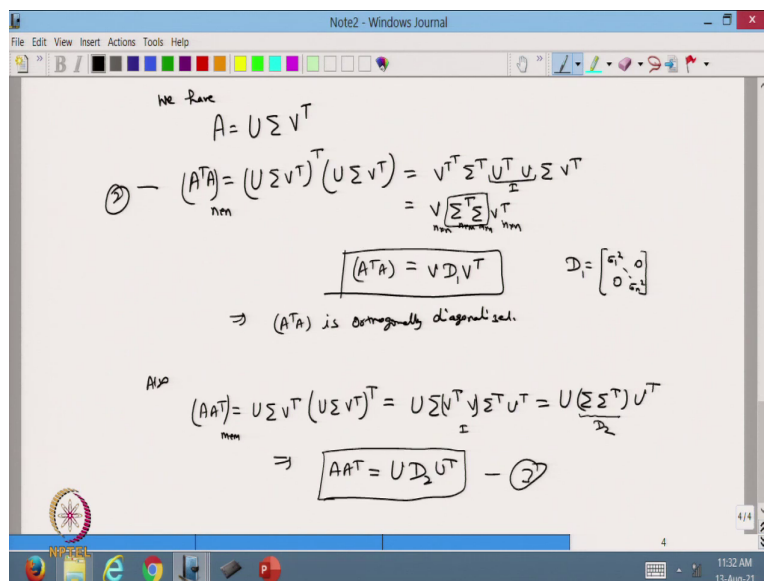 Note2 - Windows Journal
File Edit View Insert Actions Tools Help
B I
We have
A = U Σ V^T
② — (A^T A)_{n×n} = (U Σ V^T)^T (U Σ V^T) = V^{T^T} Σ^T U^T U Σ V^T
I
= V Σ^T Σ V^T
n×n n×m m×n n×n
(A^T A) = V D₁ V^T D₁ = [σ₁² 0 0 σₙ²]
⇒ (A^T A) is orthogonally diagonalised.
Also
(AA^T)_{m×m} = U Σ V^T (U Σ V^T)^T = U Σ (V^T V) Σ^T U^T = U (Σ Σ^T) U^T
I D₂
⇒ AA^T = U D₂ U^T —
4/4
4
NPTEL
11:32 AM
13-Aug-21